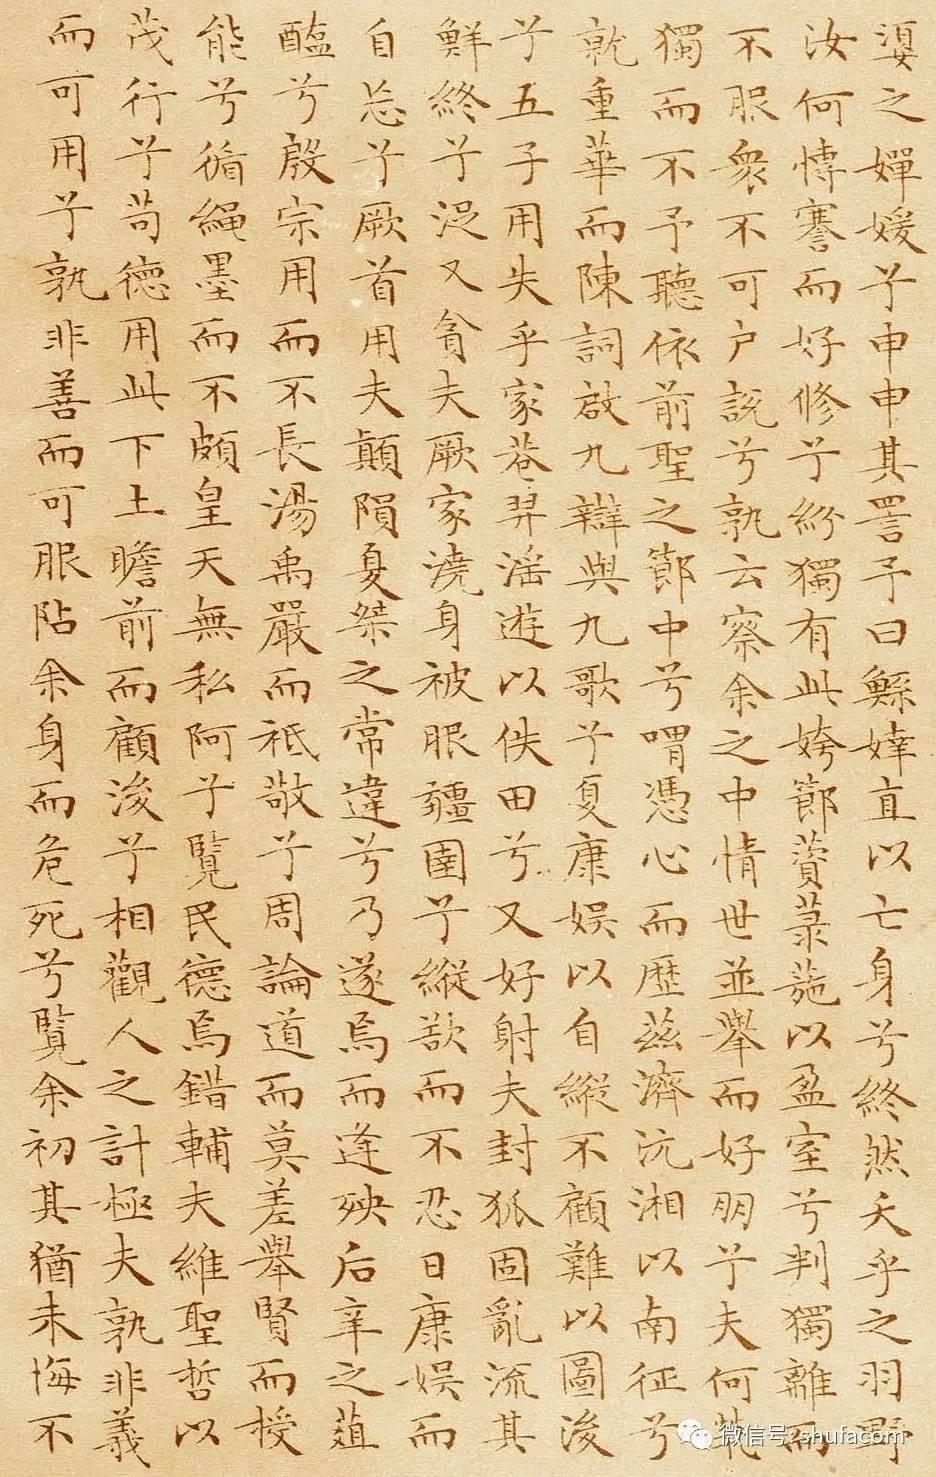 嬃之嬋媛兮申申其詈予曰鯀婞直以亡身兮終然夭乎之羽野
汝何博謇而好修兮紛獨有此姱節薋菉葹以盈室兮判獨離而
不服衆不可户說兮孰云察余之中情世並舉而好朋兮夫何煢
獨而不予聽依前聖之節中兮喟憑心而歷茲濟沅湘以南征兮
就重華而陳詞啟九辯與九歌兮夏康娛以自縱不顧難以圖後
兮五子用失乎家巷羿淫遊以佚田兮又好射夫封狐固亂流其
鮮終兮浞又貪夫厥家澆身被服疆圉兮縱欲而不忍日康娛而
自忘兮厥首用夫顛隕夏桀之常違兮乃遂焉而逢殃后辛之菹
醢兮殷宗用而不長湯禹嚴而祗敬兮周論道而莫差舉賢而授
能兮循繩墨而不頗皇天無私阿兮覽民德焉錯輔夫維聖哲以
茂行兮苟德用此下土瞻前而顧後兮相觀人之計極夫孰非義
而可用兮孰非善而可服阽余身而危死兮覽余初其猶未悔不
微信号: shufacom